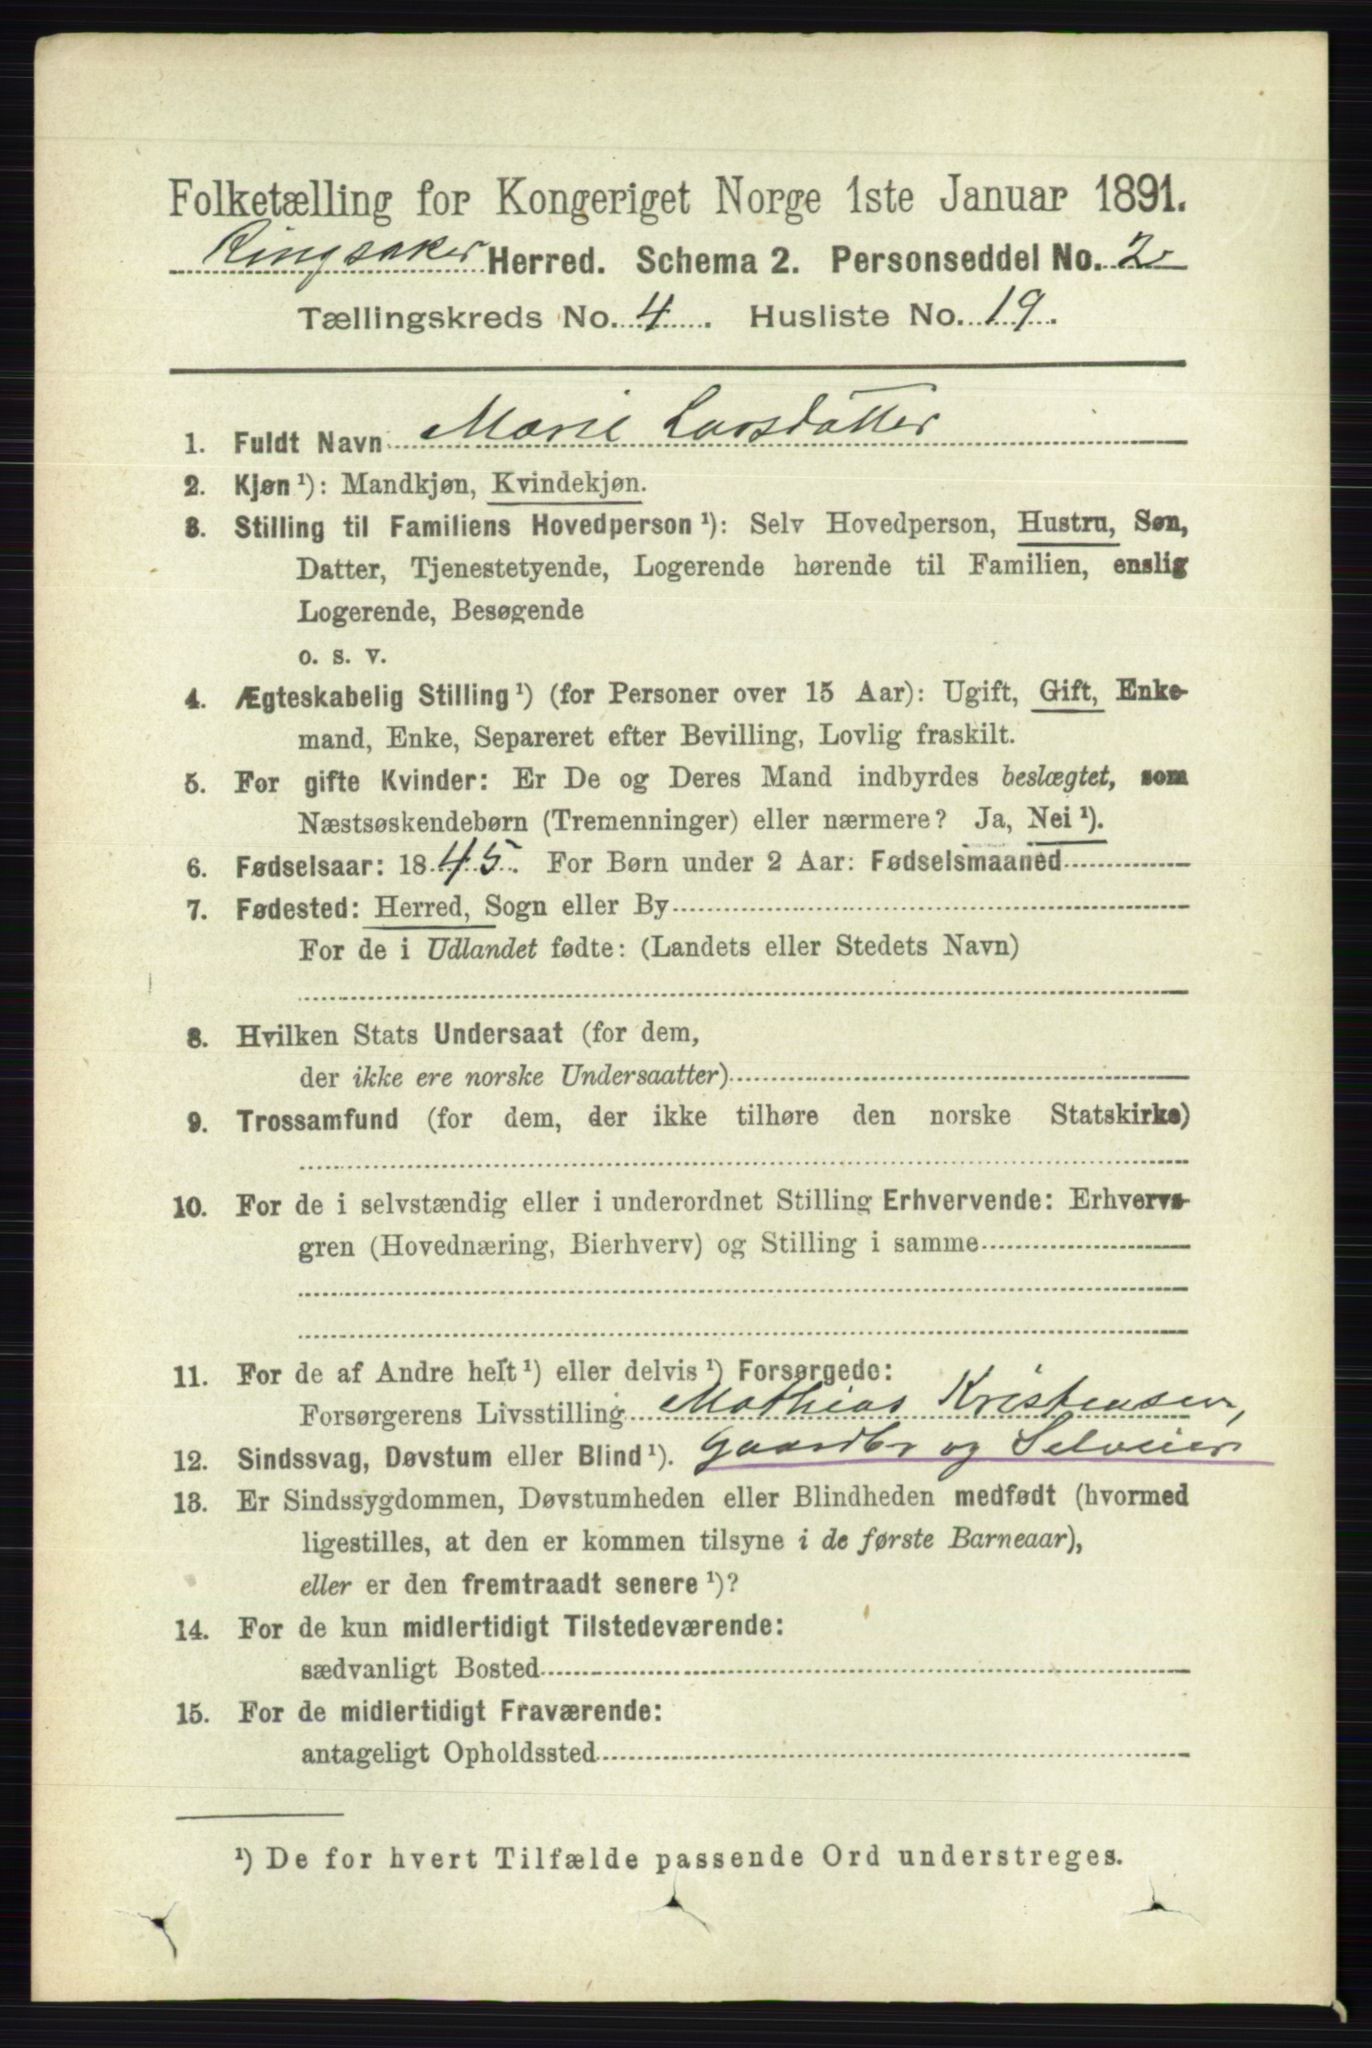 Folketælling for Kongeriget Norge 1ste Januar 1891.
Ringsaker Herred. Schema 2. Personseddel No. 2
Tællingskreds No. 4. Husliste No. 19.
1. Fuldt Navn Marie Larsdatter
2. Kjøn ¹): Mandkjøn, Kvindekjøn.
3. Stilling til Familiens Hovedperson ¹): Selv Hovedperson, Hustru, Søn,
Datter, Tjenestetyende, Logerende hørende til Familien, enslig
Logerende, Besøgende
o. s. v.
4. Ægteskabelig Stilling ¹) (for Personer over 15 Aar): Ugift, Gift, Enke-
mand, Enke, Separeret efter Bevilling, Lovlig fraskilt.
5. For gifte Kvinder: Er De og Deres Mand indbyrdes beslægtet, som
Næstsøskendebørn (Tremenninger) eller nærmere? Ja, Nei ¹).
6. Fødselsaar: 1845. For Børn under 2 Aar: Fødselsmaaned
7. Fødested: Herred, Sogn eller By
For de i Udlandet fødte: (Landets eller Stedets Navn)
8. Hvilken Stats Undersaat (for dem,
der ikke ere norske Undersaatter)
9. Trossamfund (for dem, der ikke tilhøre den norske Statskirke)
10. For de i selvstændig eller i underordnet Stilling Erhvervende: Erhvervs-
gren (Hovednæring, Bierhverv) og Stilling i samme
11. For de af Andre helt ¹) eller delvis ¹) Forsørgede:
Forsørgerens Livsstilling Mathias Kristensen,
12. Sindssvag, Døvstum eller Blind ¹). Gaardbr og Selveier
13. Er Sindssygdommen, Døvstumheden eller Blindheden medfødt (hvormed
ligestilles, at den er kommen tilsyne i de første Barneaar),
eller er den fremtraadt senere ¹)?
14. For de kun midlertidigt Tilstedeværende:
sædvanligt Bosted
15. For de midlertidigt Fraværende:
antageligt Opholdssted
¹) De for hvert Tilfælde passende Ord understreges.